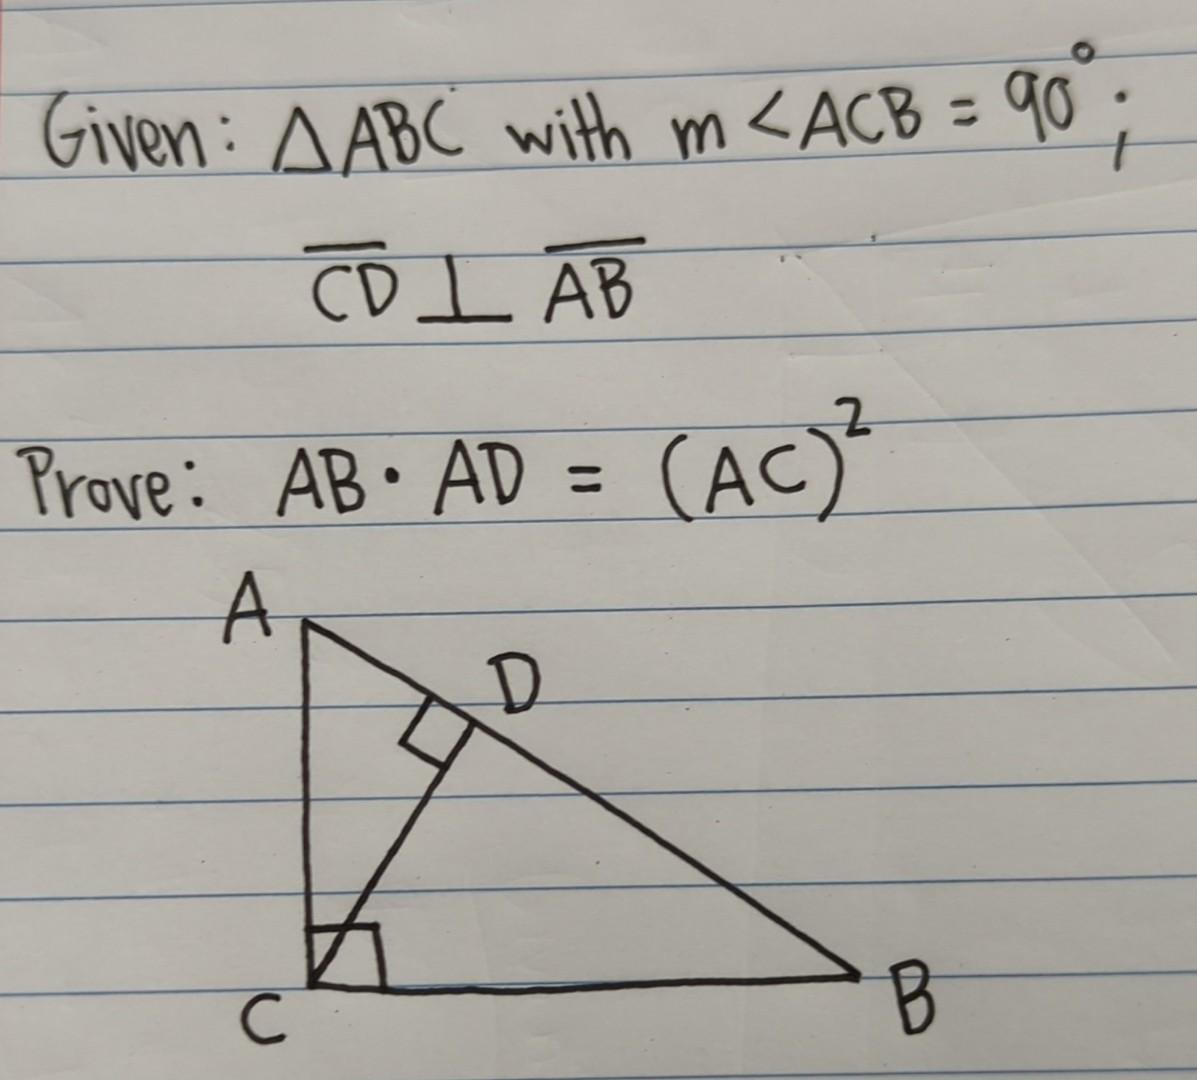 Given: △ABC with m<ACB = 90°;
C̅D̅ ⊥ A̅B̅
Prove: AB · AD = (AC)²
A
D
C
B